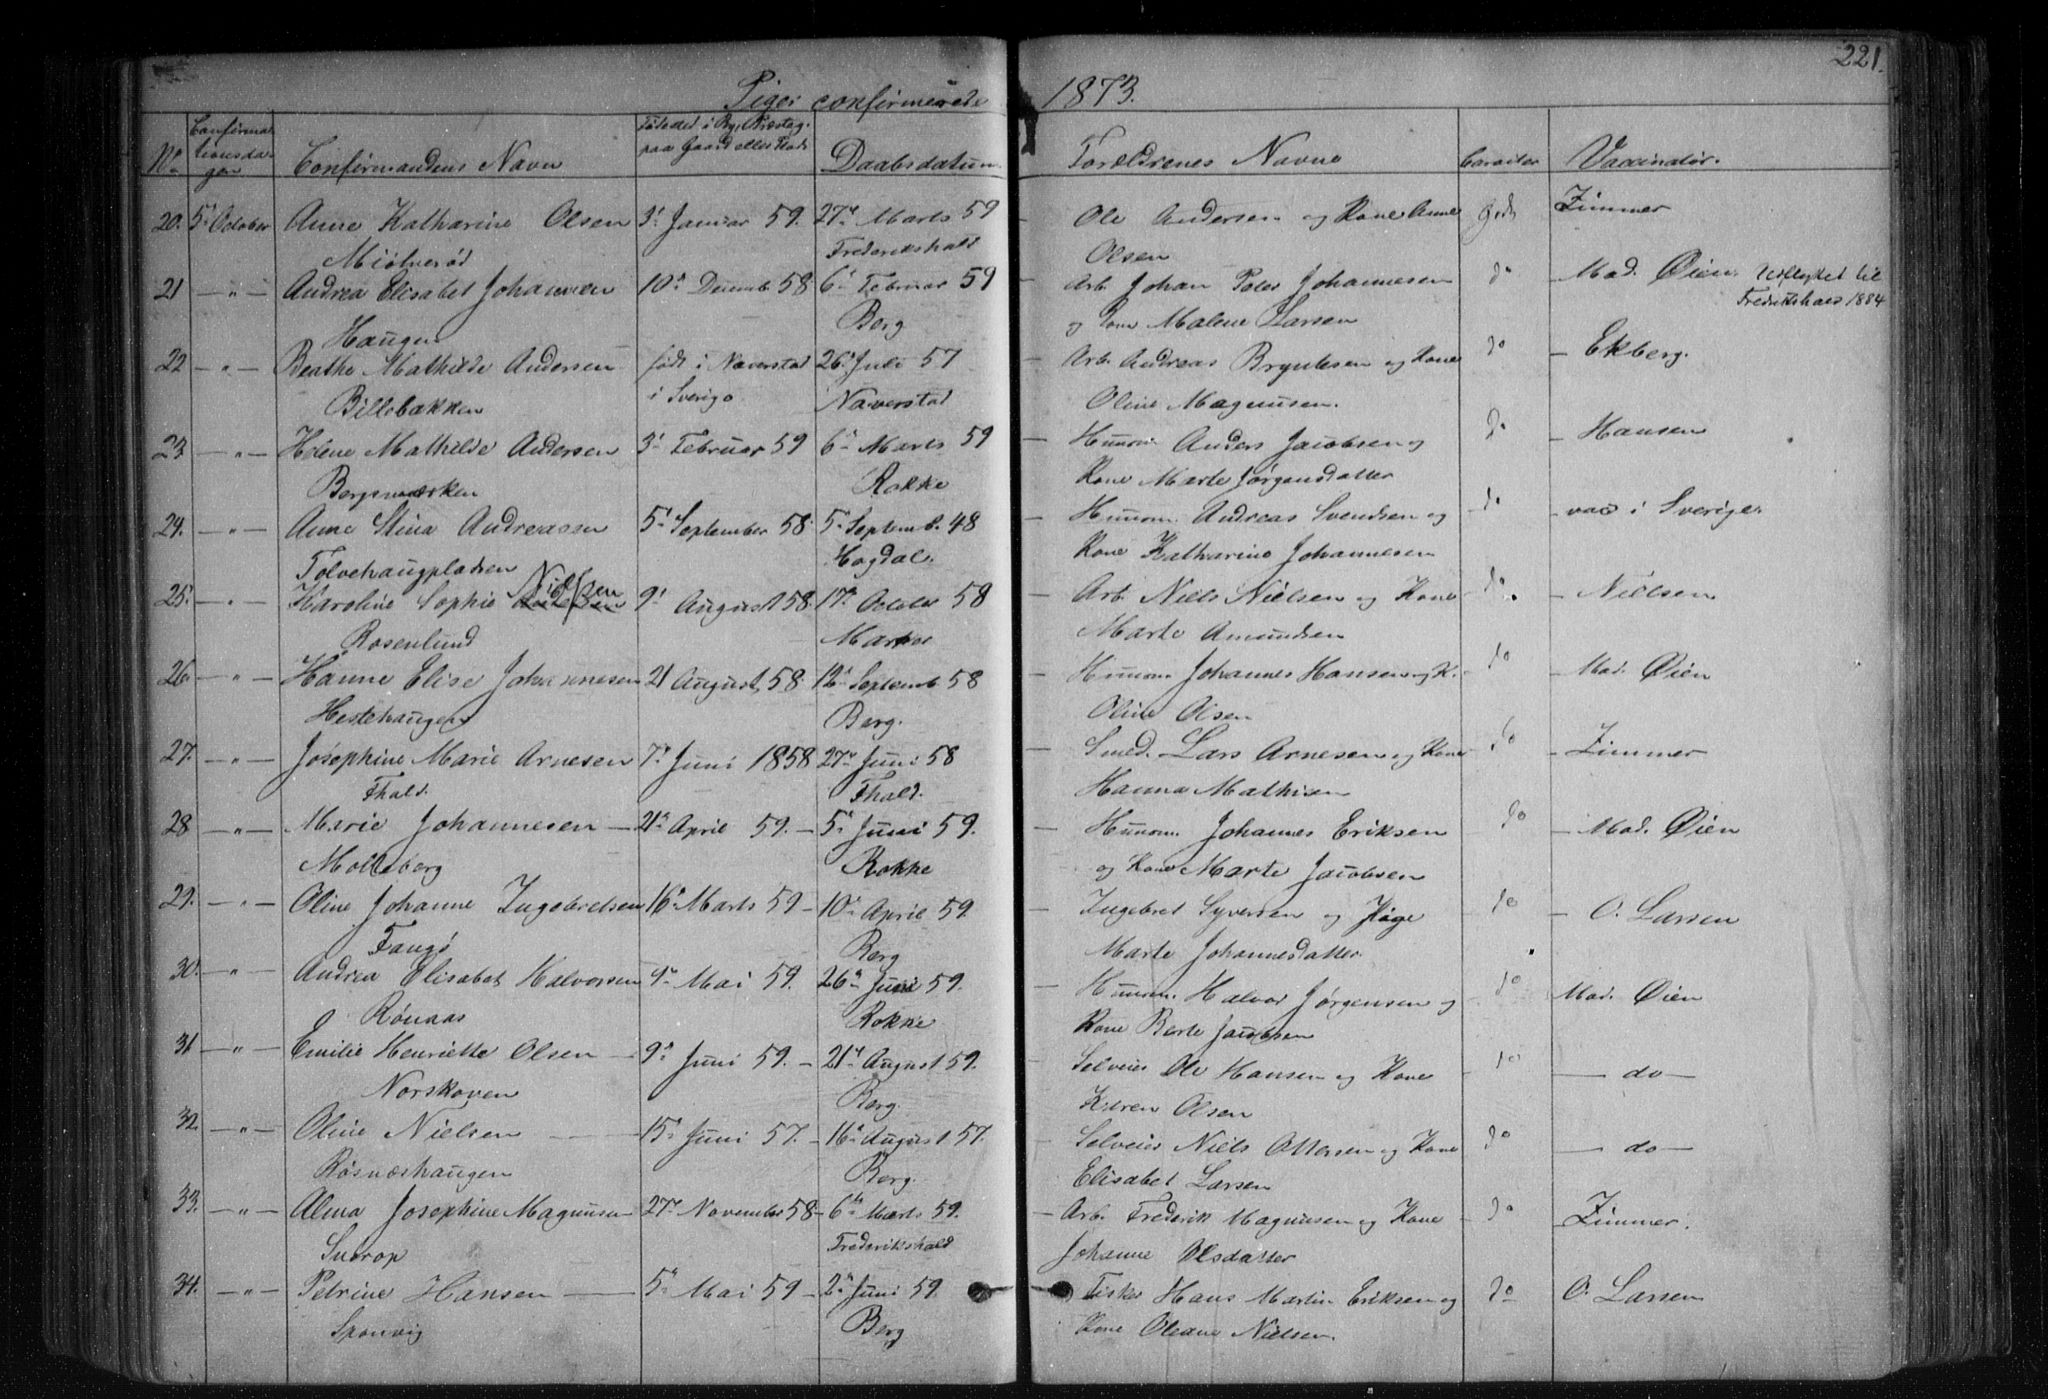 221.
Piger confirmerede 1873.
No. Confirmationsdagen Confirmandens Navn Fødested i By, Præsteg. paa Gaard eller Plads Daabsdatum Forældrenes Navne Caracter Vaccinatør.
20. 5t October Anne Katharine Olsen 3t Januar 59. 27de Marts 59 — Ole Andersen og Kone Anne godt Zimmer
Miölnerød Frederikshald Olsen
21 — " — Andrea Elisabet Johannesen 10de Decemb 58 6te Februar 59 — Arb. Johan Peter Johannesen do Mad. Øien. Udflyttet til
Haugen Berg og Kone Malene Larsen Fredrikshald 1884
22 — " — Beathe Mathilde Andersen født i Naverstad 26de Juli 57 — Arb. Andreas Bryntesen og Kone do — Ekberg.
Billebakken i Sverige Naverstad Oline Magnusen.
23 — " — Helene Mathilde Andersen 3t Februar 59 6te Marts 59 — Huusm. Anders Jacobsen og do — Hansen
Bergsmarken Rokke Kone Marte Jørgensdatter
24. — " — Anne Stina Andreassen 5t September 58. 5t Septemb. 48 — Huusm. Andreas Svendsen og do — vac i Sverige.
Tolvehaugpladsen Hogdal. Kone Katharine Johannesen
25. — " — Karoline Sophie Nielsen 9t August 58. 17de October 58 — Arb. Niels Nielsen og Kone do — Nielsen
Rosenlund Marker Marte Amundsen
26. — " — Hanne Elise Johannesen 21 August 58. 12te Septemb 58 — Huusm Johannes Hansen og K. do — Mad. Øien
Hestehaugen Berg. Oline Olsen
27. — " — Josephine Marie Arnesen 7de Juni 1858 27de Juni 58 — Smed. Lars Arnesen og Kone do — Zimmer
Fhald. Fhald. Hanna Mathisen
28 — " — Marie Johannesen — 21de April 59. — 5te Juni 59. — Huusm. Johannes Eriksen do — Mad. Øien
Molteberg Rokke og Kone Marte Jacobsen
29. — " — Oline Johanne Ingebretsen 16de Marts 59 — 10de April 59. — Ingebret Syversen og Pige do — O. Larsen
Tangø Berg Marte Johannesdatter
30. — " — Andrea Elisabet Halvorsen 9de Mai 59. 26de Juni 59. — Huusm. Halvor Jørgensen og do Mad. Øien
Rönaas Rokke Kone Berte Jacobsen
31 — " — Emilie Henriette Olsen — 9de Juni 59. — 21de August 59. Selveier Ole Hansen og Kone do — do —
Norskoven Berg. Karen Olsen
32. — " — Oline Nielsen — 15de Juni 57. — 16de August 57. — Selveier Niels Ottersen og Kone do — do —
Røsnæshaugen Berg. Elisabet Larsen
33. — " — Alma Josephine Magnusen 27de November 58 — 6te Marts 59. — Arb. Frederik Magnusen og Kone do — Zimmer.
Sudrop Frederikshald Johanne Olsdatter
34. — " — Petrine Hansen — 5te Mai 59 — 2den Juni 59. Fisker Hans Martin Eriksen og do O. Larsen
Sponvig Berg Kone Oleane Nielsen.